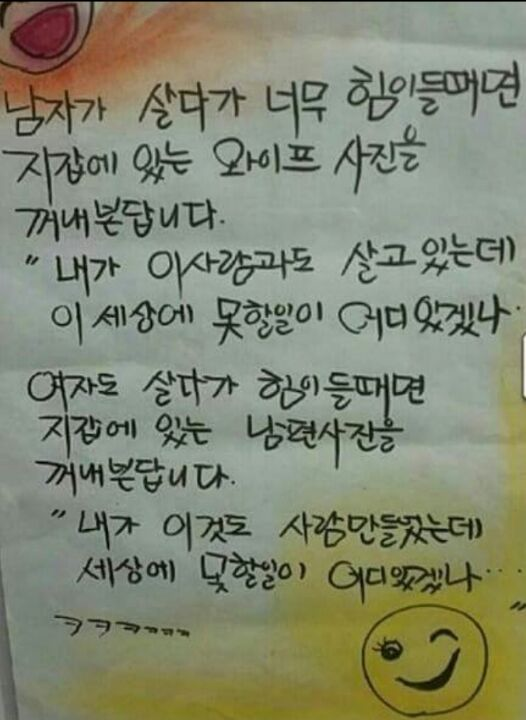 남자가 살다가 너무 힘이들때면
지갑에 있는 와이프 사진을
꺼내본답니다.
" 내가 이사람과도 살고있는데
이 세상에 못할일이 어디있겠나..
여자도 살다가 힘이들때면
지갑에 있는 남편사진을
꺼내본답니다.
" 내가 이것도 사람만들었는데
세상에 못할일이 어디있겠나... "
ㅋㅋㅋㅋㅋㅋㅋ